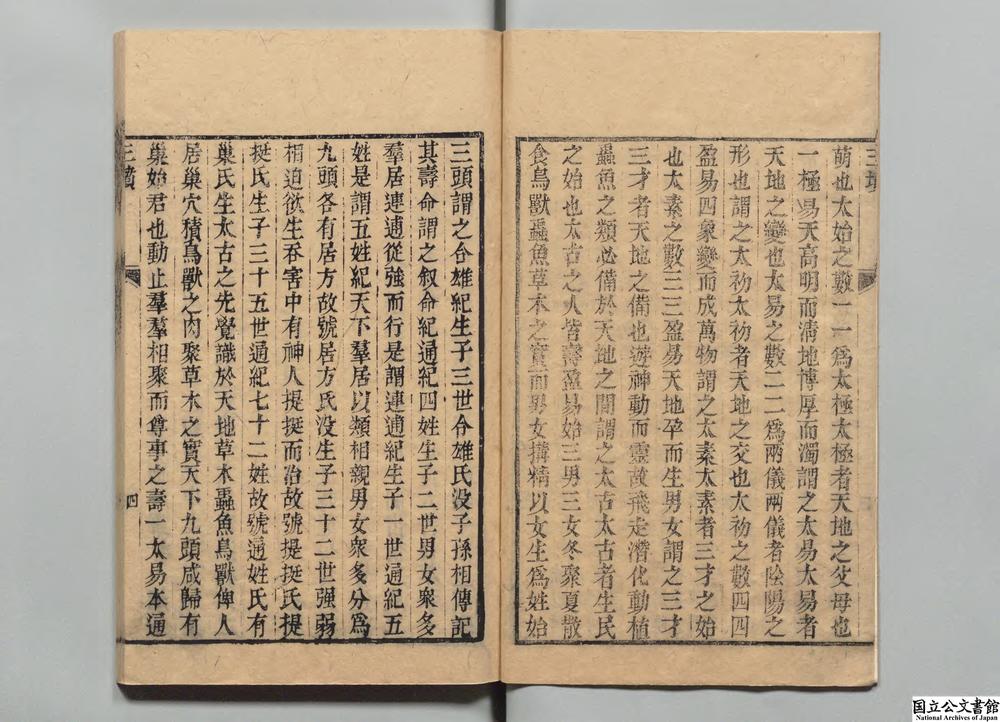 萌也太始之數一一爲太極太極者天地之父母也
一極易天高明而清地博厚而濁謂之太易太易者
天地之變也太易之數二二爲兩儀兩儀者陰陽之
形也謂之太初太初者天地之交也太初之數四四
盈易四象變而成萬物謂之太素太素者三才之始
也太素之數三三盈易天地孕而生男女謂之三才
三才者天地之備也遊神動而靈故飛走潛化動植
蟲魚之類必備於天地之間謂之太古太古者生民
之始也太古之人皆壽盈易始三男三女冬聚夏散
食鳥獸蟲魚草木之實而男女搆精以女生爲姓始
三墳
三頭謂之合雄紀生子三世合雄氏没子孫相傳記
其壽命謂之叙命紀通紀四姓生子二世男女衆多
羣居連逋從強而行是謂連逋紀生子一世通紀五
姓是謂五姓紀天下羣居以類相親男女衆多分爲
九頭各有居方故號居方氏没生子三十二世强弱
相迫欲生吞害中有神人提挺而治故號提挺氏提
挺氏生子三十五世通紀七十二姓故號通姓氏有
巢氏生太古之先覺識於天地草木蟲魚鳥獸俾人
居巢穴積鳥獸之肉聚草木之實天下九頭咸歸有
巢始君也動止羣羣相聚而尊事之壽一太易本通
三墳
四
国立公文書館
National Archives of Japan